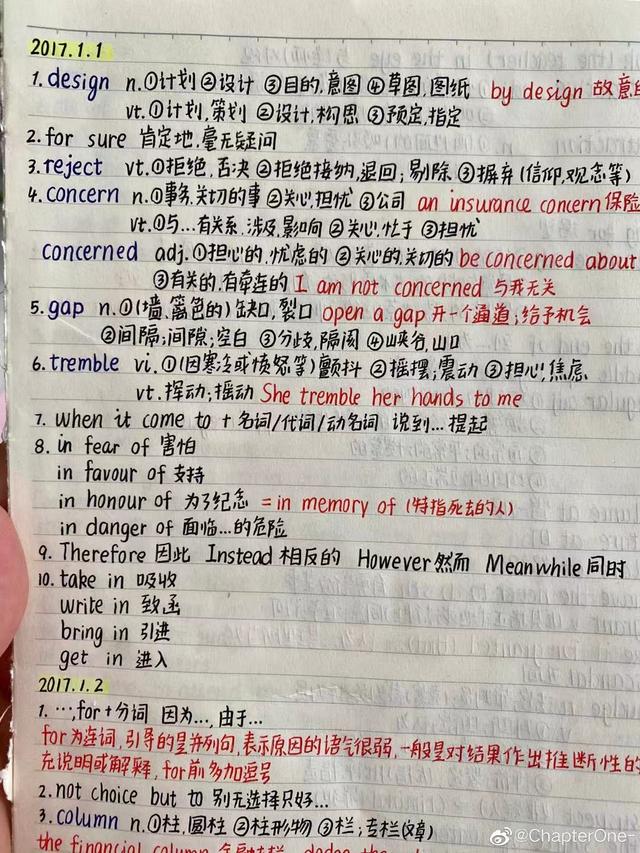 2017.1.1
1. design n.①计划②设计 ③目的,意图 ④草图,图纸 by design 故意
vt.①计划,策划 ②设计,构思 ③预定,指定
2. for sure 肯定地,毫无疑问
3. reject vt.①拒绝,否决 ②拒绝接纳,退回;剔除 ③摒弃(信仰,观念等)
4. concern n.①事务,关切的事 ②关心,担忧 ③公司 an insurance concern 保险
vt.①与...有关系,涉及,影响 ②关心,忙于 ③担忧
concerned adj.①担心的,忧虑的 ②关心的,关切的 be concerned about
③有关的,有牵连的 I am not concerned 与我无关
5. gap n.①(墙、篱色的)缺口,裂口 open a gap 开一个通道;给予机会
②间隔;间隙;空白 ③分歧,隔阂 ④山峡谷,山口
6. tremble vi.①(因寒冷或愤怒等)颤抖 ②摇摆;震动 ③担心,焦虑
vt.挥动;摇动 She tremble her hands to me
7. when it come to + 名词/代词/动名词 说到...提起
8. in fear of 害怕
in favour of 支持
in honour of 为了纪念 = in memory of (特指死去的人)
in danger of 面临...的危险
9. Therefore 因此 Instead 相反的 However 然而 Meanwhile 同时
10. take in 吸收
write in 致函
bring in 引进
get in 进入
2017.1.2
1. ...,for+分词 因为...,由于...
for为连词,引导的是并列句,表示原因的语气很弱,一般是对结果作出推断性的
充说明或解释,for前多加逗号
2. not choice but to 别无选择只好...
3. column n.①柱,圆柱 ②柱形物 ③栏;专栏(文章)
the financial column 金融专栏
@ChapterOne-